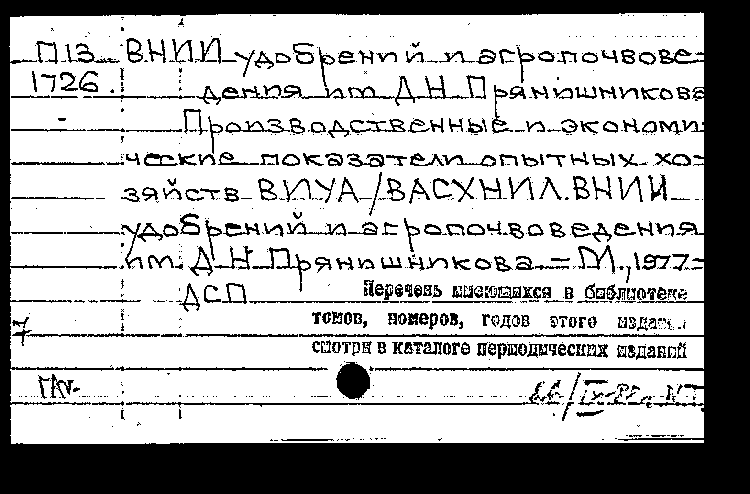 П13 ВНИИ удобрений и агропочвове=
1726. дения им Д Н Прянишникова
- Производственные и экономи
ческие показатели опытных хо=
зяйств ВИУА/ВАСХНИЛ.ВНИИ
удобрений и агропочвоведения
им. Д Н Прянишникова – М., 1977-
ДСП Перечень имеющихся в библиотеке
томов, номеров, годов этого издания
смотри в каталоге периодических изданий